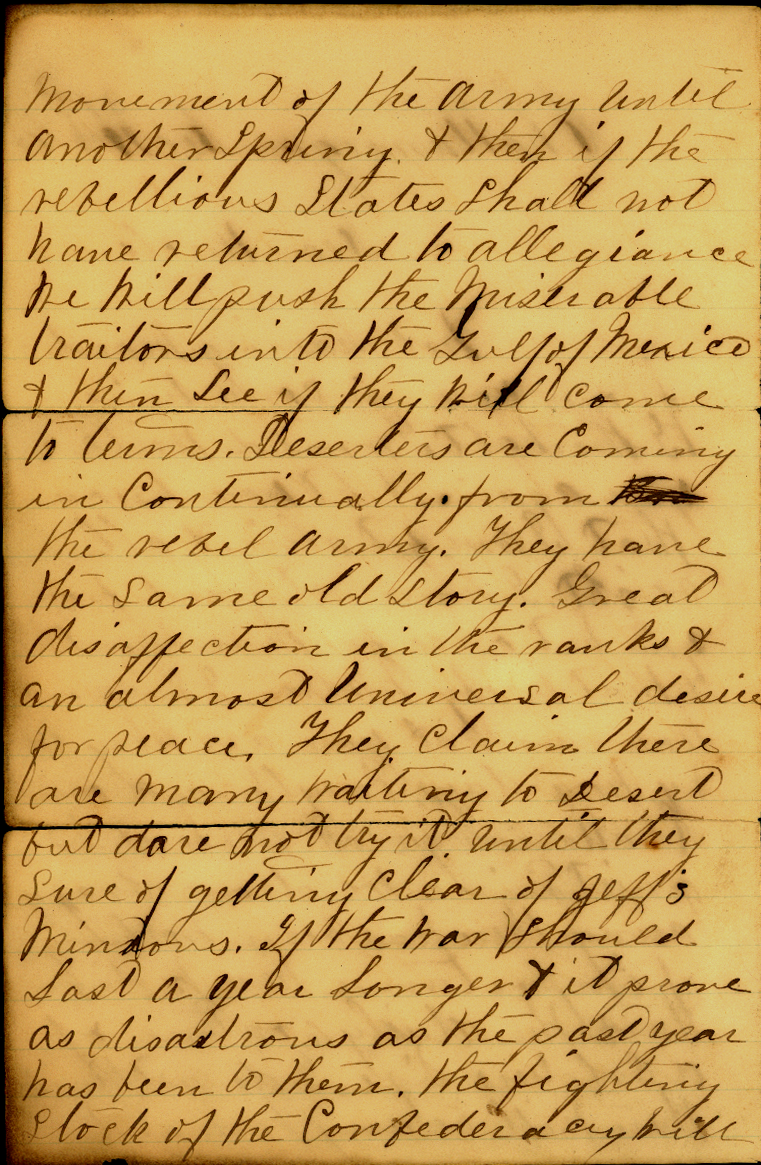 movement of the Army until
another Spring. & then if the
rebellious States shall not
have returned to allegiance
we will push the miserable
traitors into the Gulf of Mexico
& then See if they will come
to terms. Deserters are Coming
in Continually. from
the rebel army. They have
the same old story. Great
disaffection in the ranks &
an almost Universal desire
for peace. They Claim there
are many waiting to Desert
but dare not try it until they
sure of getting Clear of Jeff's
Minions. If the war should
Last a year Longer & it prove
as disastrous as the past year
has been to them. the fighting
Stock of the Confederacy will